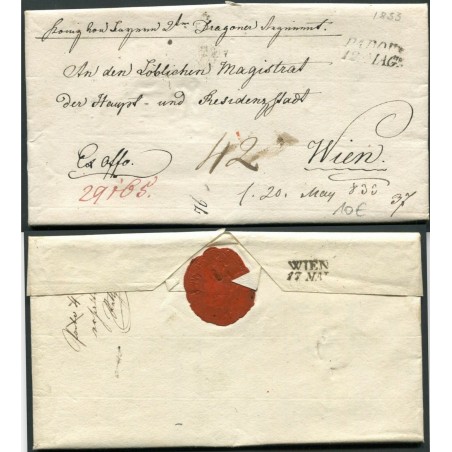 König von Bayern 2ten Dragoner Regiment.
1833
An den Löblichen Magistrat
17 MAG.
der Haupt- und Residenzstadt
Ex offo.
42
Wien.
29165.
20. May 833
10€
37
76
WIEN
17 MAI